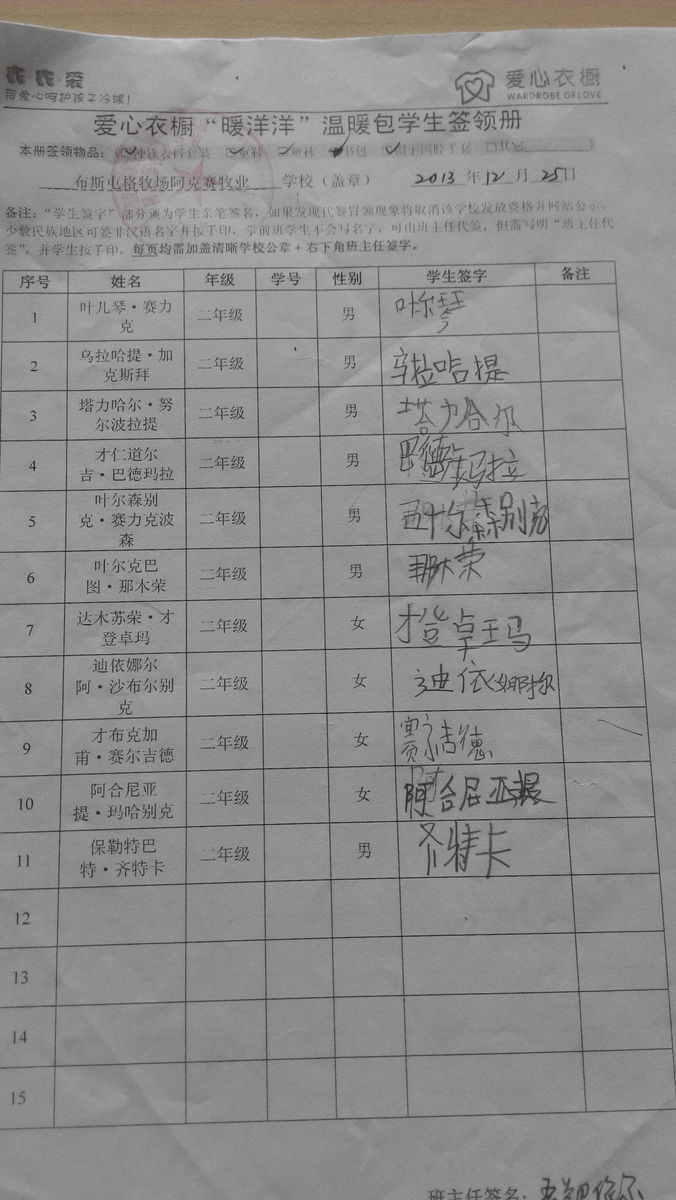 用爱心呵护孩子冷暖!
爱心衣橱
WARDROBE OF LOVE
爱心衣橱“暖洋洋”温暖包学生签领册
本册签领物品:
布斯屯格牧场阿克赛牧业 学校(盖章) 2013 年 12 月 25 日
备注:“学生签字”部分须为学生亲笔签名,如果发现代签冒领现象将取消该学校发放资格并网站公示。
少数民族地区可签非汉语名字并按手印,学前班学生不会写名字,可由班主任代签,但需写明“班主任代
签”,并学生按手印。每页均需加盖清晰学校公章+右下角班主任签字。
序号 姓名 年级 学号 性别 学生签字 备注
1 叶儿琴·赛力克 二年级 男 叶尔琴
2 乌拉哈提·加克斯拜 二年级 男 乌拉哈提
3 塔力哈尔·努尔波拉提 二年级 男 塔力哈尔
4 才仁道尔吉·巴德玛拉 二年级 男 巴德玛拉
5 叶尔森别克·赛力克波森 二年级 男 叶尔森别克
6 叶尔克巴图·那木荣 二年级 男 那木荣
7 达木苏荣·才登卓玛 二年级 女 才登卓玛
8 迪依娜尔阿·沙布尔别克 二年级 女 迪依娜尔
9 才布克加甫·赛尔吉德 二年级 女 赛尔吉德
10 阿合尼亚提·玛哈别克 二年级 女 阿合尼亚提
11 保勒特巴特·齐特卡 二年级 男 齐特卡
12
13
14
15
班主任签名: